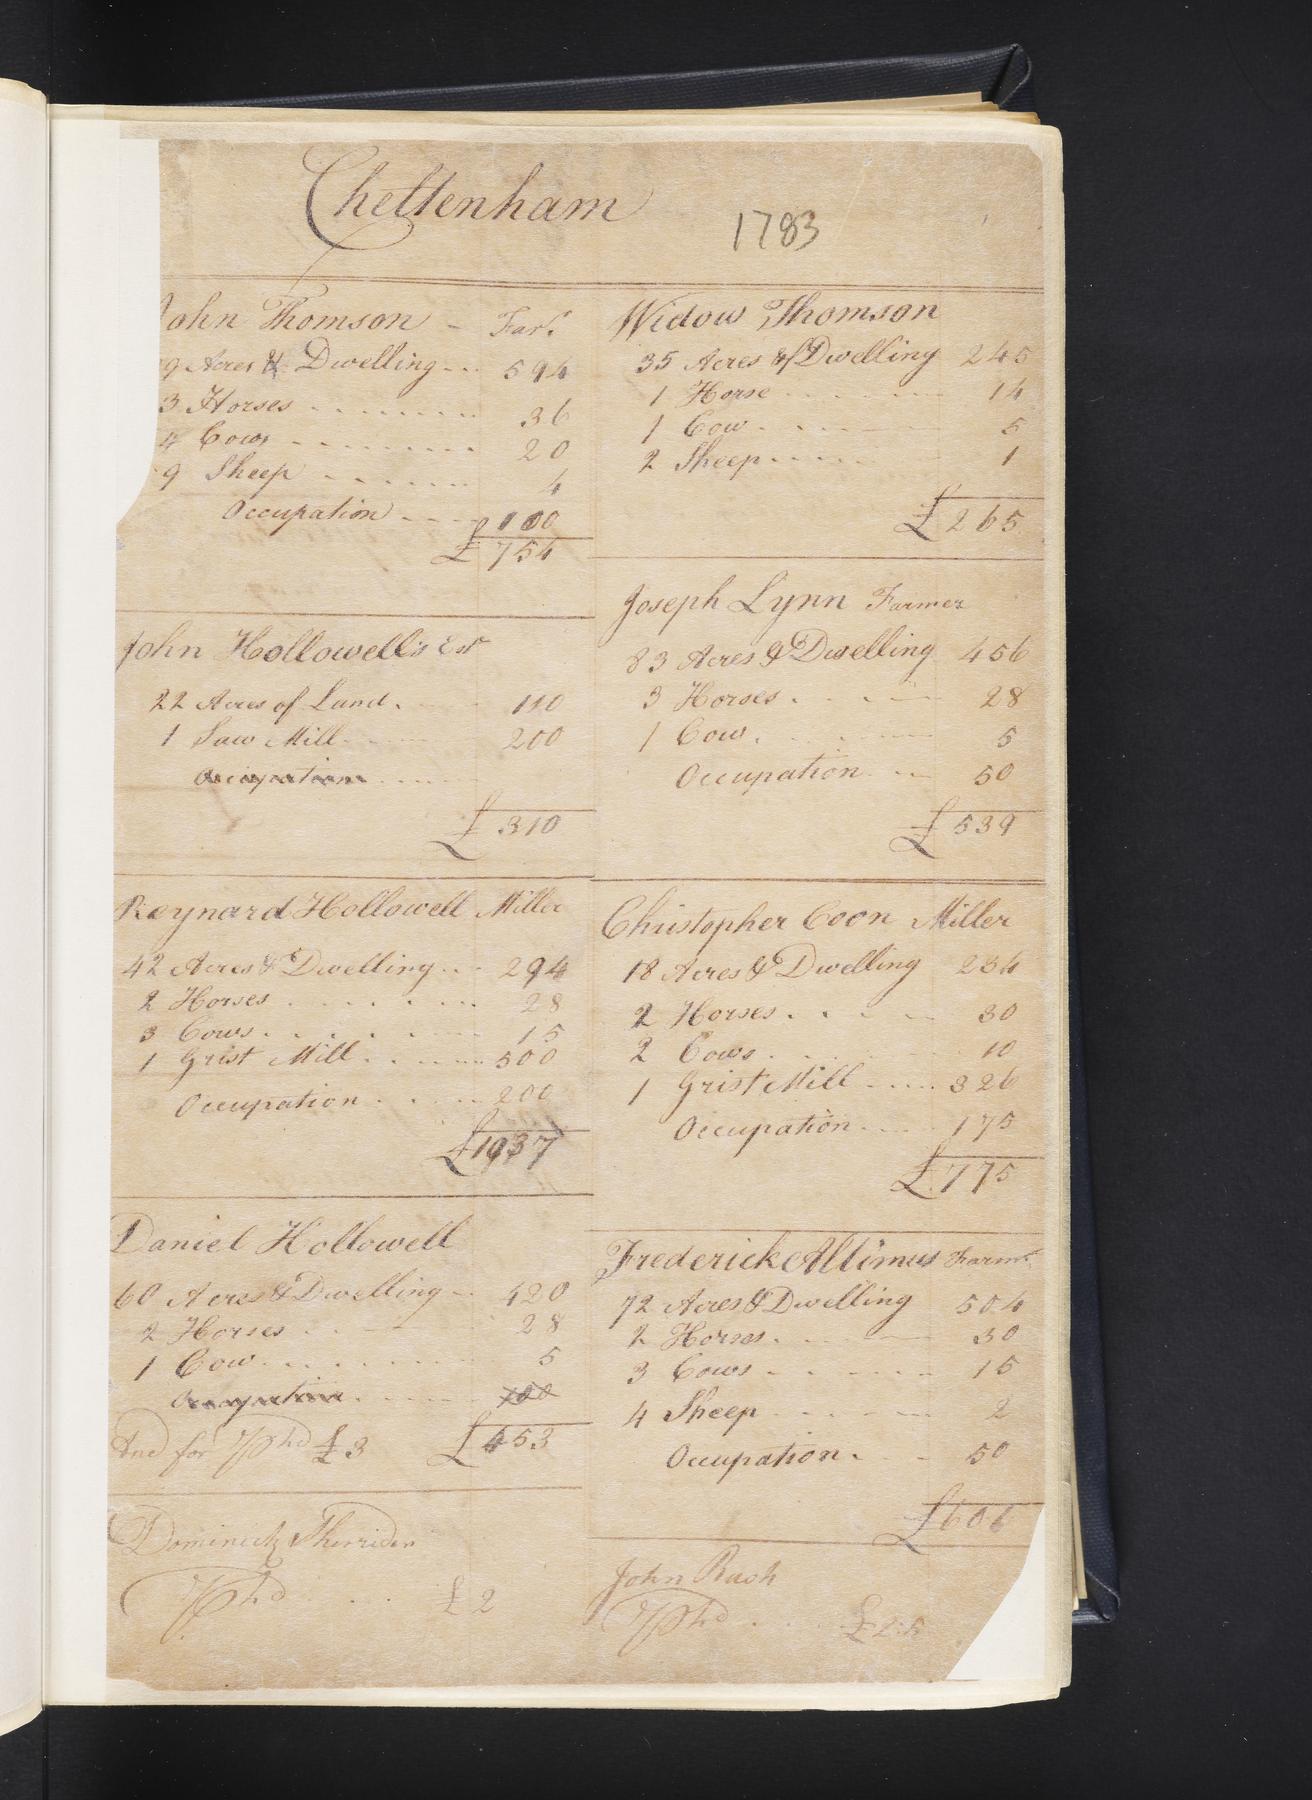 Cheltenham
1783
John Thomson - Farr
9 Acres & Dwelling 594
3 Horses 36
4 Cows 20
9 Sheep 4
Occupation 100
£ 754
John Hollowell's Est
22 Acres of Land 110
1 Saw Mill 200
Occupation
£ 310
Reynard Hollowell Miller
42 Acres & Dwelling 294
2 Horses 28
3 Cows 15
1 Grist Mill 500
Occupation 200
£ 1937
Daniel Hollowell
60 Acres & Dwelling 420
2 Horses 28
1 Cow 5
Occupation 100
£ 453
And for £3
Dominick Sherriden
£ 2
Widow Thomson
35 Acres of Dwelling 245
1 Horse 14
1 Cow 5
2 Sheep 1
£ 265
Joseph Lynn Farmer
83 Acres & Dwelling 456
3 Horses 28
1 Cow 5
Occupation 50
£ 539
Christopher Coon Miller
18 Acres & Dwelling 234
2 Horses 30
2 Cows 10
1 Grist Mill 326
Occupation 175
£ 775
Frederick Altimus Farmr
72 Acres & Dwelling 504
2 Horses 30
3 Cows 15
4 Sheep 2
Occupation 50
£ 606
John Rush